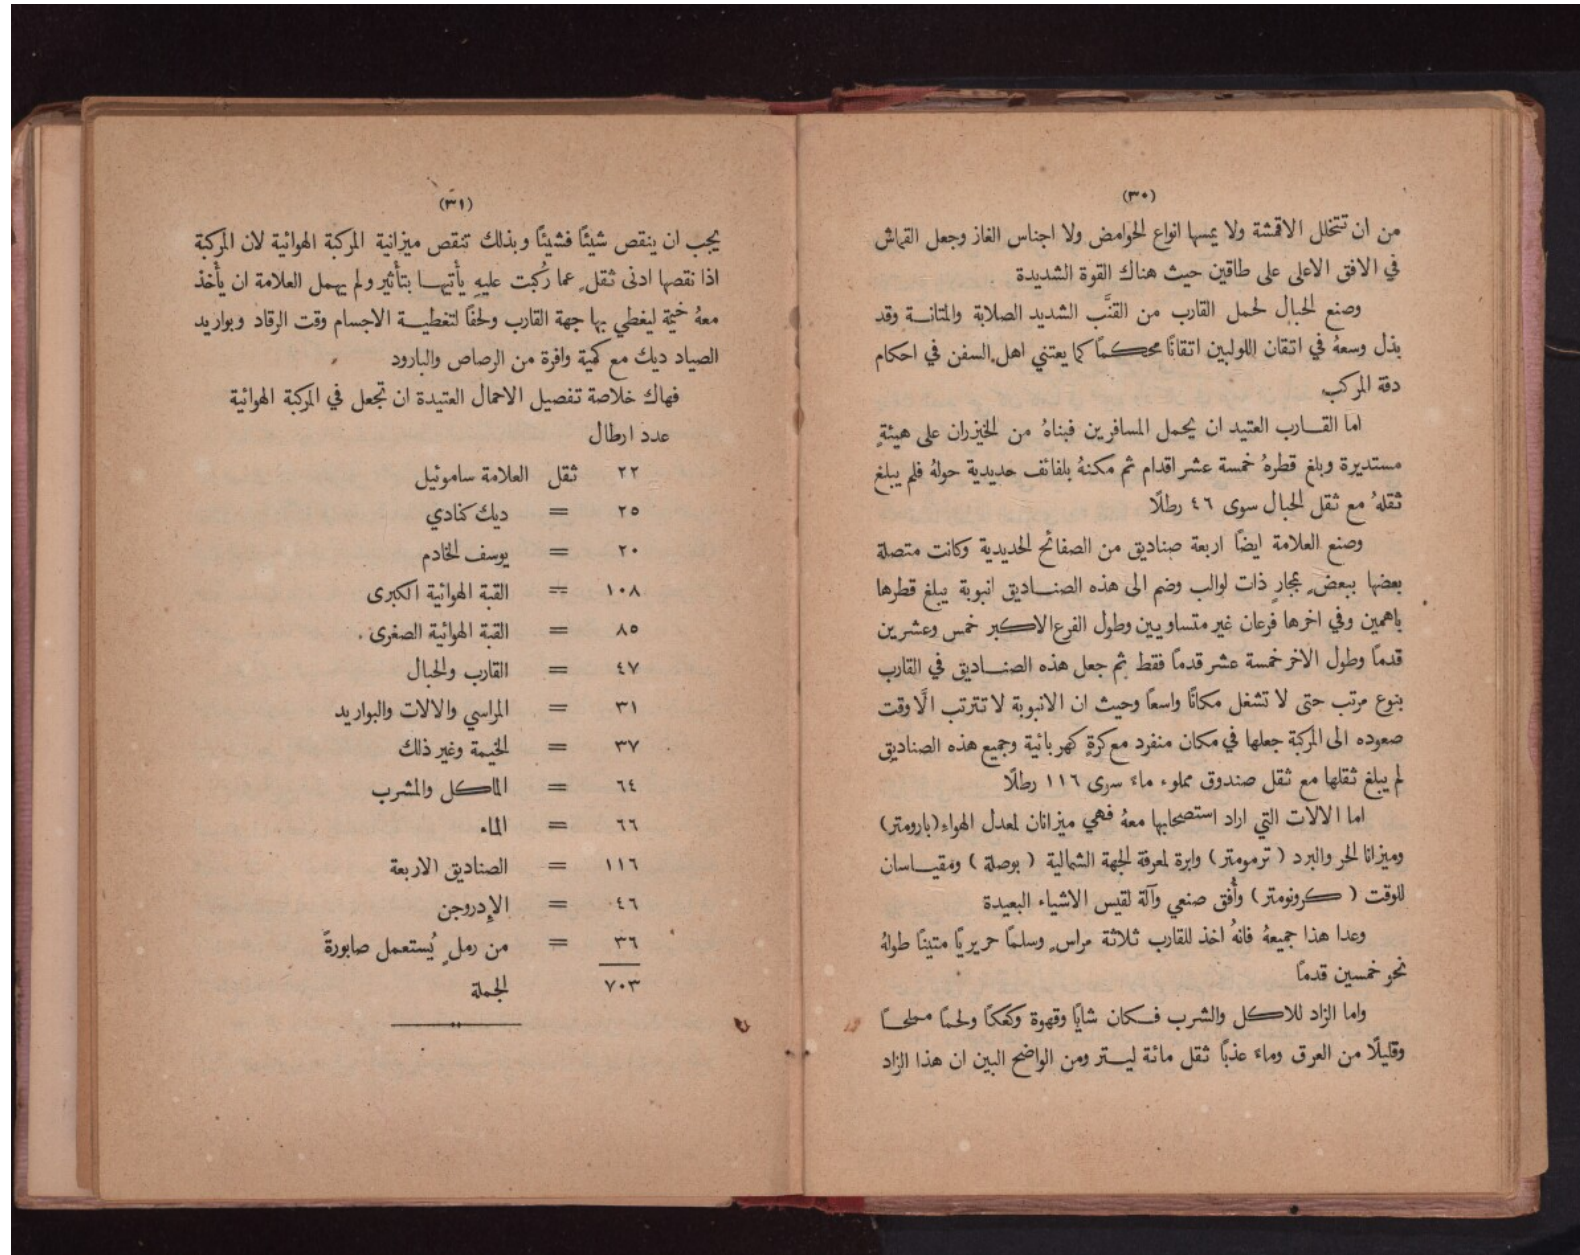 (٣٠)
من ان تتخلل الاقمشة ولا يمسها انواع الحوامض ولا اجناس الغاز وجعل القماش
في الافق الاعلى على طاقين حيث هناك القوة الشديدة
وصنع الحبال لحمل القارب من القنَّب الشديد الصلابة والمتانة وقد
بذل وسعهُ في اتقان اللولبين اتقانًا محكمًا كما يعتني اهل السفن في احكام
دفة المركب
اما القارب العتيد ان يحمل المسافرين فبناهُ من الخيزران على هيئةٍ
مستديرة وبلغ قطرهُ خمسة عشر اقدام ثم مكنهُ بلفائف حديدية حولهُ فلم يبلغ
ثقلهُ مع ثقل الحبال سوى ٤٦ رطلًا
وصنع العلامة ايضًا اربعة صناديق من الصفائح الحديدية وكانت متصلة
بعضها ببعضٍ بمجارٍ ذات لوالب وضم الى هذه الصناديق انبوبة يبلغ قطرها
باهمين وفي اخرها فرعان غير متساويين وطول الفرع الاكبر خمس وعشرين
قدمًا وطول الاخر خمسة عشر قدمًا فقط ثم جعل هذه الصناديق في القارب
بنوع مرتب حتى لا تشغل مكانًا واسعًا وحيث ان الانبوبة لا تترتب الَّا وقت
صعوده الى المركبة جعلها في مكان منفرد مع كرةٍ كهربائية وجميع هذه الصناديق
لم يبلغ ثقلها مع ثقل صندوق مملوء ماء سرى ١١٦ رطلًا
اما الالات التي اراد استصحابها معهُ فهي ميزانان لمعدل الهواء (بارومتر)
وميزانا الحر والبرد ( ترمومتر ) وابرة لمعرفة الجهة الشمالية ( بوصلة ) ومقياسان
للوقت ( كرونومتر ) وأُفق صنعي وآلة لقيس الاشياء البعيدة
وعدا هذا جميعهُ فانهُ اخذ للقارب ثلاثة مراسٍ وسلمًا حريريًا متينًا طولهُ
نحو خمسين قدمًا
واما الزاد للاكل والشرب فكان شايًا وقهوة وكعكًا ولحمًا مملحًا
وقليلًا من العرق وماء عذبًا ثقل مائة ليتر ومن الواضح البين ان هذا الزاد
(٣١)
يجب ان ينقص شيئًا فشيئًا وبذلك تنقص ميزانية المركبة الهوائية لان المركبة
اذا نقصها ادنى ثقلٍ عما رُكبت عليهِ يأتيها بتأثير ولم يهمل العلامة ان يأخذ
معهُ خيمة ليغطي بها جهة القارب ولحفًا لتغطية الاجسام وقت الرقاد وبواريد
الصياد ديك مع كمية وافرة من الرصاص والبارود
فهاك خلاصة تفصيل الاحمال العتيدة ان تجعل في المركبة الهوائية
عدد ارطال
٢٢ ثقل العلامة ساموئيل
٢٥ = ديك كنادي
٢٠ = يوسف الخادم
١٠٨ = القبة الهوائية الكبرى
٨٥ = القبة الهوائية الصغرى .
٤٧ = القارب والحبال
٣١ = المراسي والالات والبواريد
٣٧ = الخيمة وغير ذلك
٦٤ = الماكل والمشرب
٦٦ = الماء
١١٦ = الصناديق الاربعة
٤٦ = الإدروجن
٣٦ = من رملٍ يُستعمل صابورةً
٧٠٣ الجملة